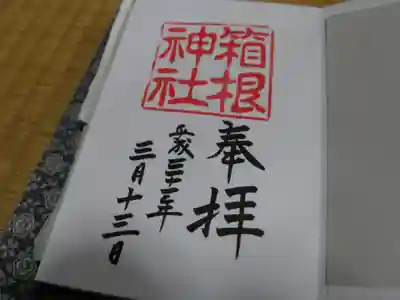 奉拝
箱根
神社
平成
年
三月十三日